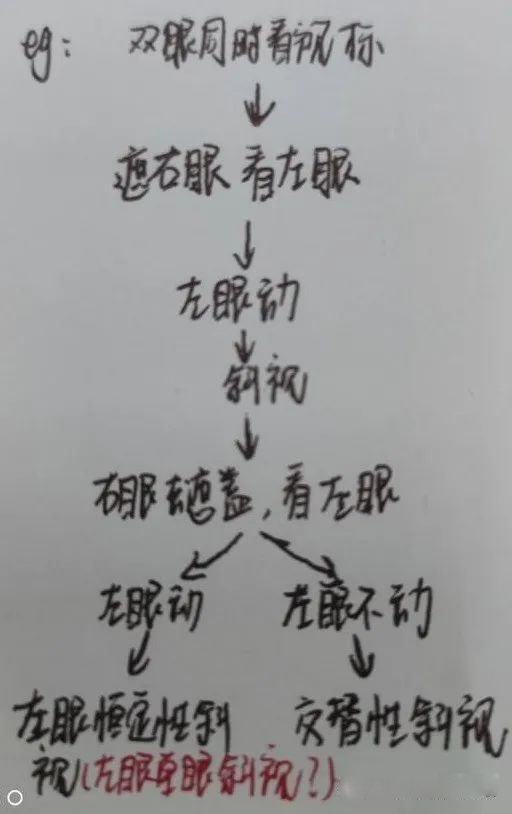 eg: 双眼同时看视标
遮右眼 看左眼
左眼动
斜视
右眼去遮盖,看左眼
左眼动 左眼不动
左眼恒定性斜 交替性斜视
视(左眼单眼斜视?)